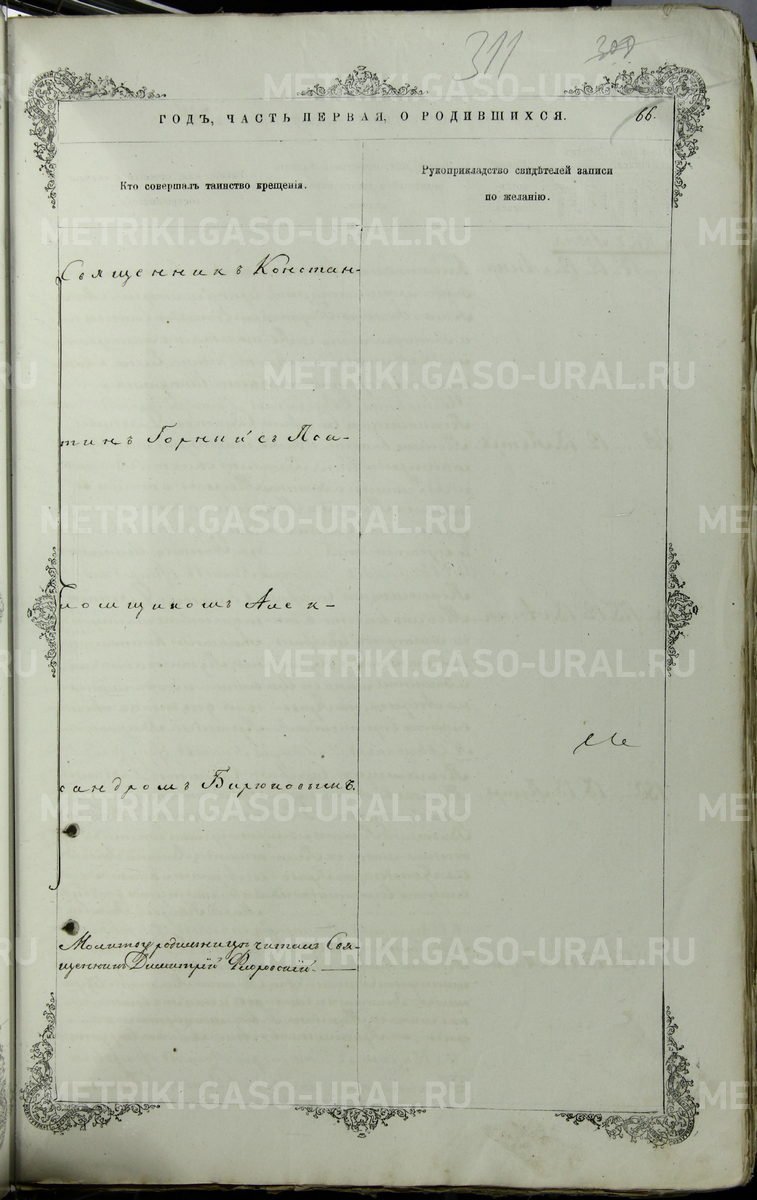 311
ГОДЪ, ЧАСТЬ ПЕРВАЯ, О РОДИВШИХСЯ.
66.
Кто совершалъ таинство крещенія.
Рукоприкладство свидѣтелей записи
по желанію.
Священникъ Констан-
тинъ съ Пса-
ломщикомъ Алек-
сандромъ Бирюковымъ.
Молитву родильницѣ читалъ Свя-
щенникъ Димитрій Флоровскій.
METRIKI.GASO-URAL.RU